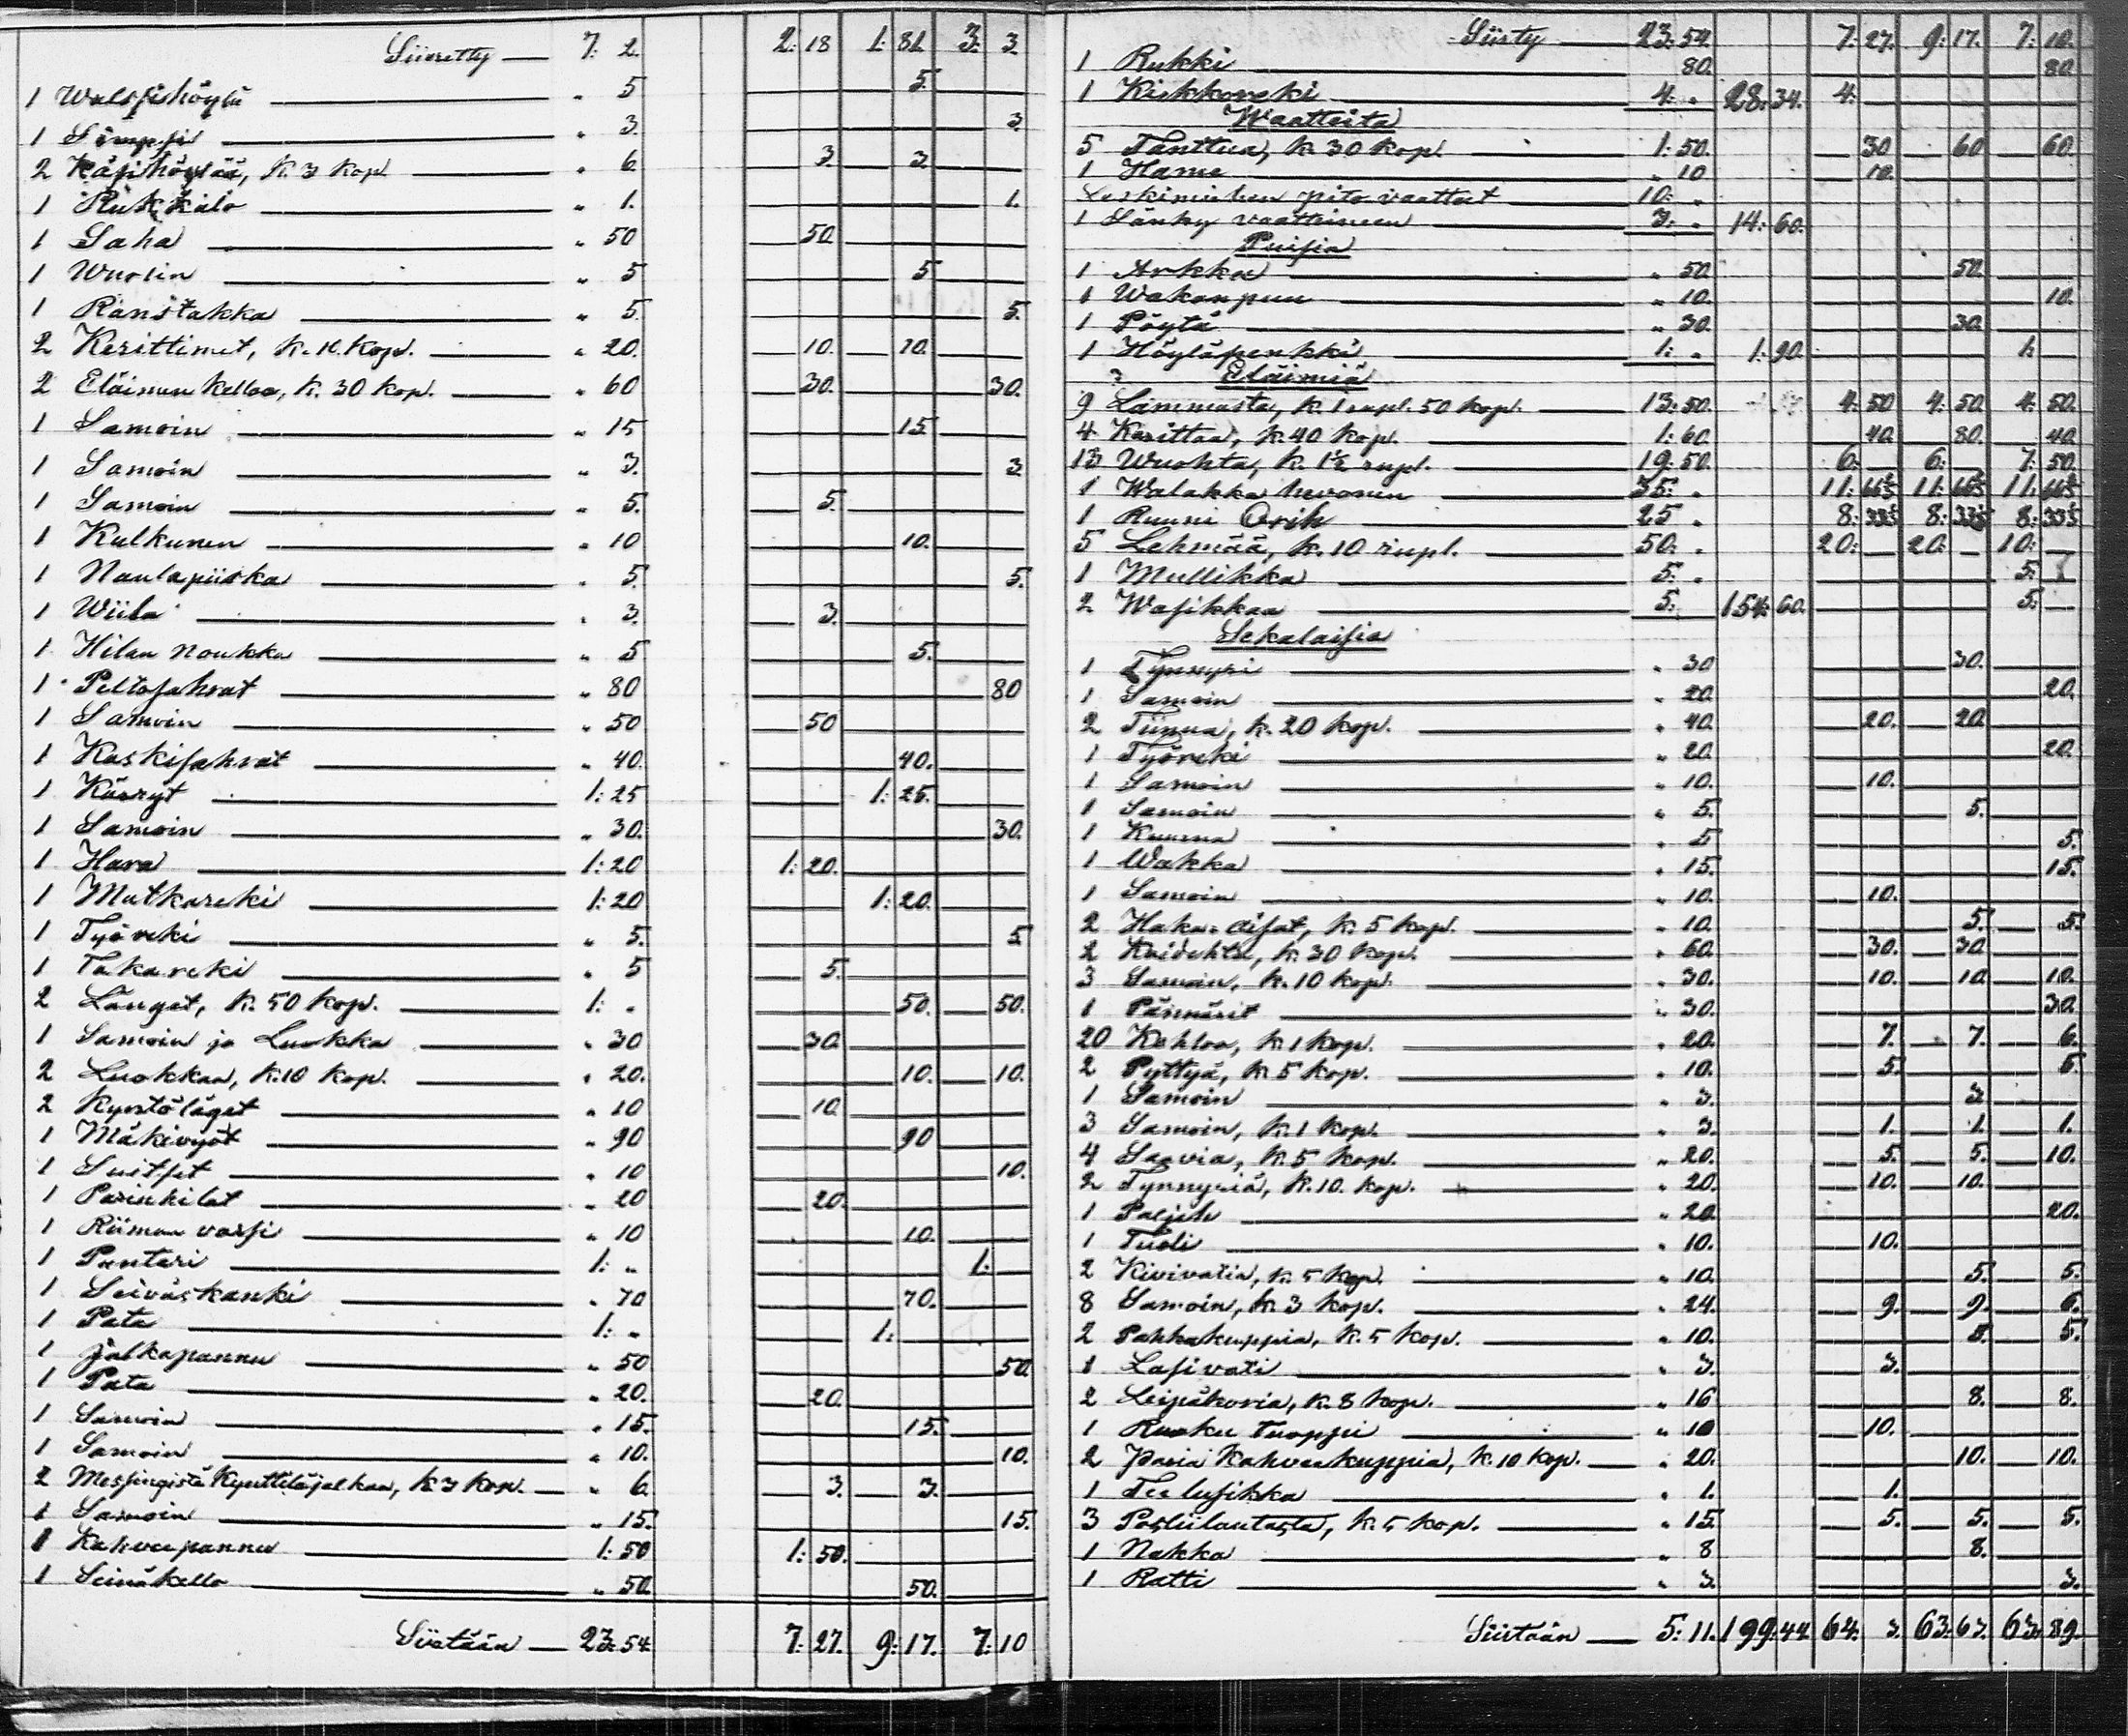 Siirretty — 7: 2. 2: 18 1: 81. 3: 3.
1 Walssihöylä " 5 5.
1 Simpsi " 3. 3.
2 Käsihöylää, k. 3 kop. " 6. 3. 3.
1 " 1. 1.
1 Saha " 50 50.
1 Wuolin " 5 5
1 Ranstakka " 5. 5.
2 Kerittimet, k. 10. kop. " 20. 10. 10.
2 Eläimen kelloa, k. 30 kop. " 60 30. 30.
1 Samoin " 15 15.
1 Samoin " 3. 3.
1 Samoin " 5. 5.
1 Kulkunen " 10 10.
1 Naulapiiska " 5. 5.
1 Wiila " 3. 3.
1 Hilan noukka " 5 5.
1 Peltosahrat " 80 80
1 Samoin " 50 50
1 Kaskisahrat " 40. 40.
1 Käsryt 1: 25 1: 25.
1 Samoin " 30. 30.
1 Hara 1: 20 1: 20.
1 Matkareki 1: 20 1: 20.
1 Työreki " 5. 5.
1 Takareki " 5 5.
2 Länget, k. 50 kop. 1: " 50. 50.
1 Samoin ja Luokka " 30 30.
2 Luokkaa, k. 10 kop. " 20. 10. 10.
2 Kyntöläget " 10 10.
1 Mäkivyöt " 90 90
1 Suitset " 10 10.
1 Parinkilat " 20 20.
1 Riimun varsi " 10 10.
1 Puntari 1: " 1:
1 Seiväskanki " 70 70.
1 Pata 1: " 1:
1 Jalkapannu " 50 50.
1 Pata " 20. 20.
1 Samoin " 15. 15.
1 Samoin " 10. 10.
2 Messingistä Kynttiläjalkaa, k. 3 kop. " 6. 3. 3.
1 Samoin " 15. 15.
1 Kahveepannu 1: 50 1: 50.
1 Seinäkello " 50. 50.
Siirtään — 23: 54. 7: 27. 9: 17. 7: 10
Siirty — 23: 54. 7: 27. 9: 17. 7: 10.
1 Rukki 80. 80.
1 Kirkkoreki 4: " 28: 34. 4:
Waatteita
5 Tanttua, k. 30 kop. 1: 50. 30 60 60.
1 Hame " 10 10.
Leskimiehen pito vaatteet 10: "
1 Sänky vaatteineen 3: " 14: 60.
Puisia
1 Arkku " 50. 50.
1 Wakanpuu " 10. 10.
1 Pöytä " 30. 30.
1 Höyläpenkki 1: " 1: 90. 1:
Eläimiä
9 Lammasta, k. 1 rupl. 50 kop. 13: 50. 4: 50 4: 50. 4: 50.
4 Karittaa, k. 40 kop. 1: 60. 40. 80. 40
13 Wuohta, k. 1½ rupl. 19: 50. 6: 6: 7: 50.
1 Walakka hevonen 35: " 11: 66⅔ 11: 66⅔ 11: 66⅔
1 Ruuni Orih 25 " 8: 33⅓ 8: 33⅓ 8: 33⅓
5 Lehmää, k. 10 rupl. 50: " 20: 20: 10:
1 Mullikka 5: " 5:
2 Wasikkaa 5: 154: 60. 5:
Sekalaisia
1 Tynnyri " 30 30.
1 Samoin " 20. 20.
2 Tiinua, k. 20 kop. " 40. 20. 20.
1 Työreki " 20. 20.
1 Samoin " 10. 10.
1 Samoin " 5. 5.
1 Kuurna " 5 5.
1 Wakka " 15. 15.
1 Samoin " 10. 10.
2 Haka-aisat, k. 5 kop. " 10. 5. 5.
2 Raidehta, k. 30 kop. " 60. 30. 30.
3 Samoin, k. 10 kop. " 30. 10. 10. 10.
1 Pärmärit " 30. 30.
20 Kehloa, k. 1 kop. " 20. 7. 7. 6.
2 Pyttyä, k. 5 kop. " 10. 5. 5.
1 Samoin " 3. 3.
3 Samoin, k. 1 kop. " 3. 1. 1. 1.
4 Saavia, k. 5 kop. " 20. 5. 5. 10.
2 Tynnyriä, k. 10. kop. " 20. 10. 10.
1 Paljuh " 20. 20.
1 Tuoli " 10. 10.
2 Kivivatia, k. 5 kop. " 10. 5. 5.
8 Samoin, k. 3 kop. " 24. 9. 9. 6.
2 Pahkakuppia, k. 5 kop. " 10. 5. 5.
1 Lasivati " 3. 3.
2 Leipäkoria, k. 8 kop. " 16 8. 8.
1 Ruoku tuoppi " 10 10.
2 Paria Kahveekuppia, k. 10 kop. " 20. 10. 10.
1 Teelusikka " 1. 1.
3 Posliilautasta, k. 5 kop. " 15. 5. 5. 5.
1 Nakka " 8 8.
1 Ratti " 3. 3.
Siirtään — 5: 11. 199: 44. 64: 3. 63: 67. 63: 89.